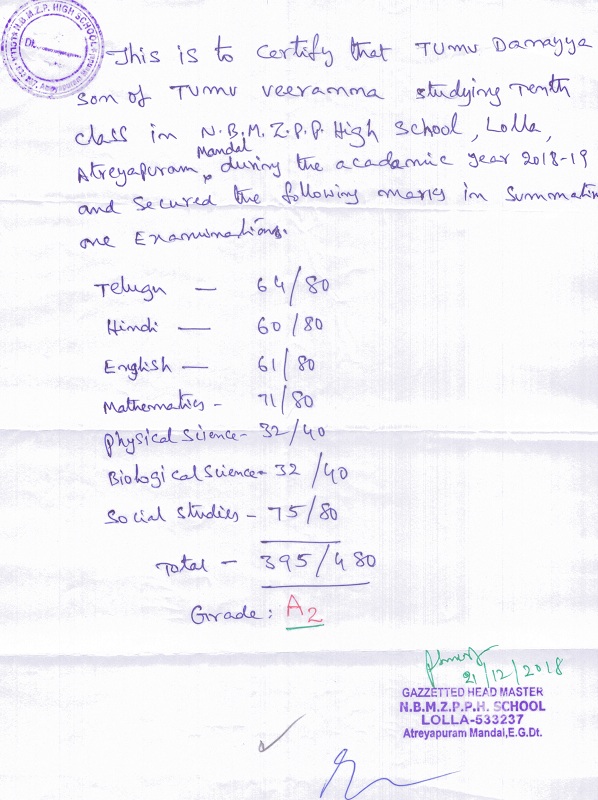 N.B.M.Z.P.P. HIGH SCHOOL
Dt.
This is to certify that TUMU Danayya
son of TUMU veeramma studying Tenth
class in N.B.M.Z.P.P. High School, Lolla,
Mandal
Atreyapuram, during the academic year 2018-19
and secured the following marks in Summative
one Examinations.
Telugu — 64/80
Hindi — 60/80
English — 61/80
Mathematics - 71/80
Physical Science - 32/40
Biological Science - 32/40
Social Studies - 75/80
Total - 395/480
Grade: A2
21/12/2018
GAZZETTED HEAD MASTER
N.B.M.Z.P.P.H. SCHOOL
LOLLA-533237
Atreyapuram Mandal,E.G.Dt.